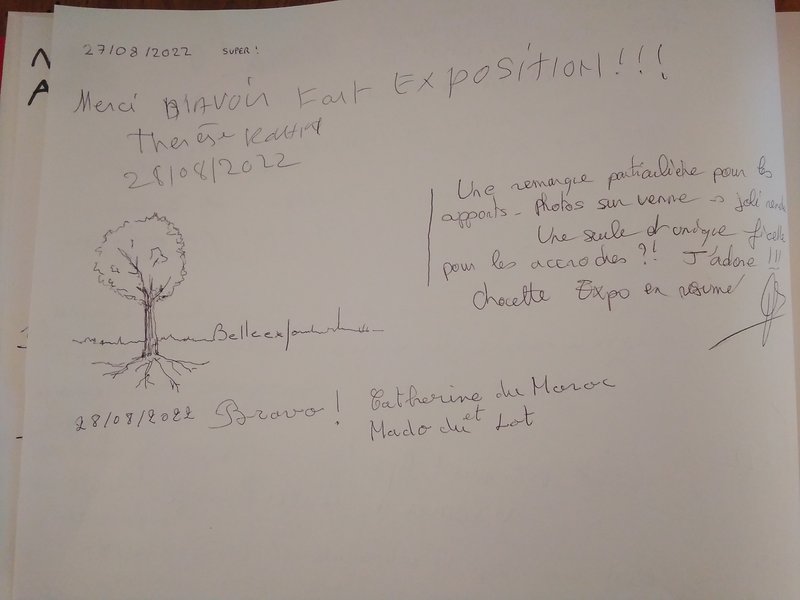 27/08/2022 SUPER!
Merci D'AVOIR Fait EXPOSITION!!!
Thérèse
28/08/2022
Une remarque particulière pour les
apports - Photos sur verre → joli rendu
Une seule et unique ficelle
pour les accroches ?! J'adore !!!
Chouette Expo en résumé
Belle expo
28/08/2022 Bravo! Catherine du Maroc
et
Mado du Lot